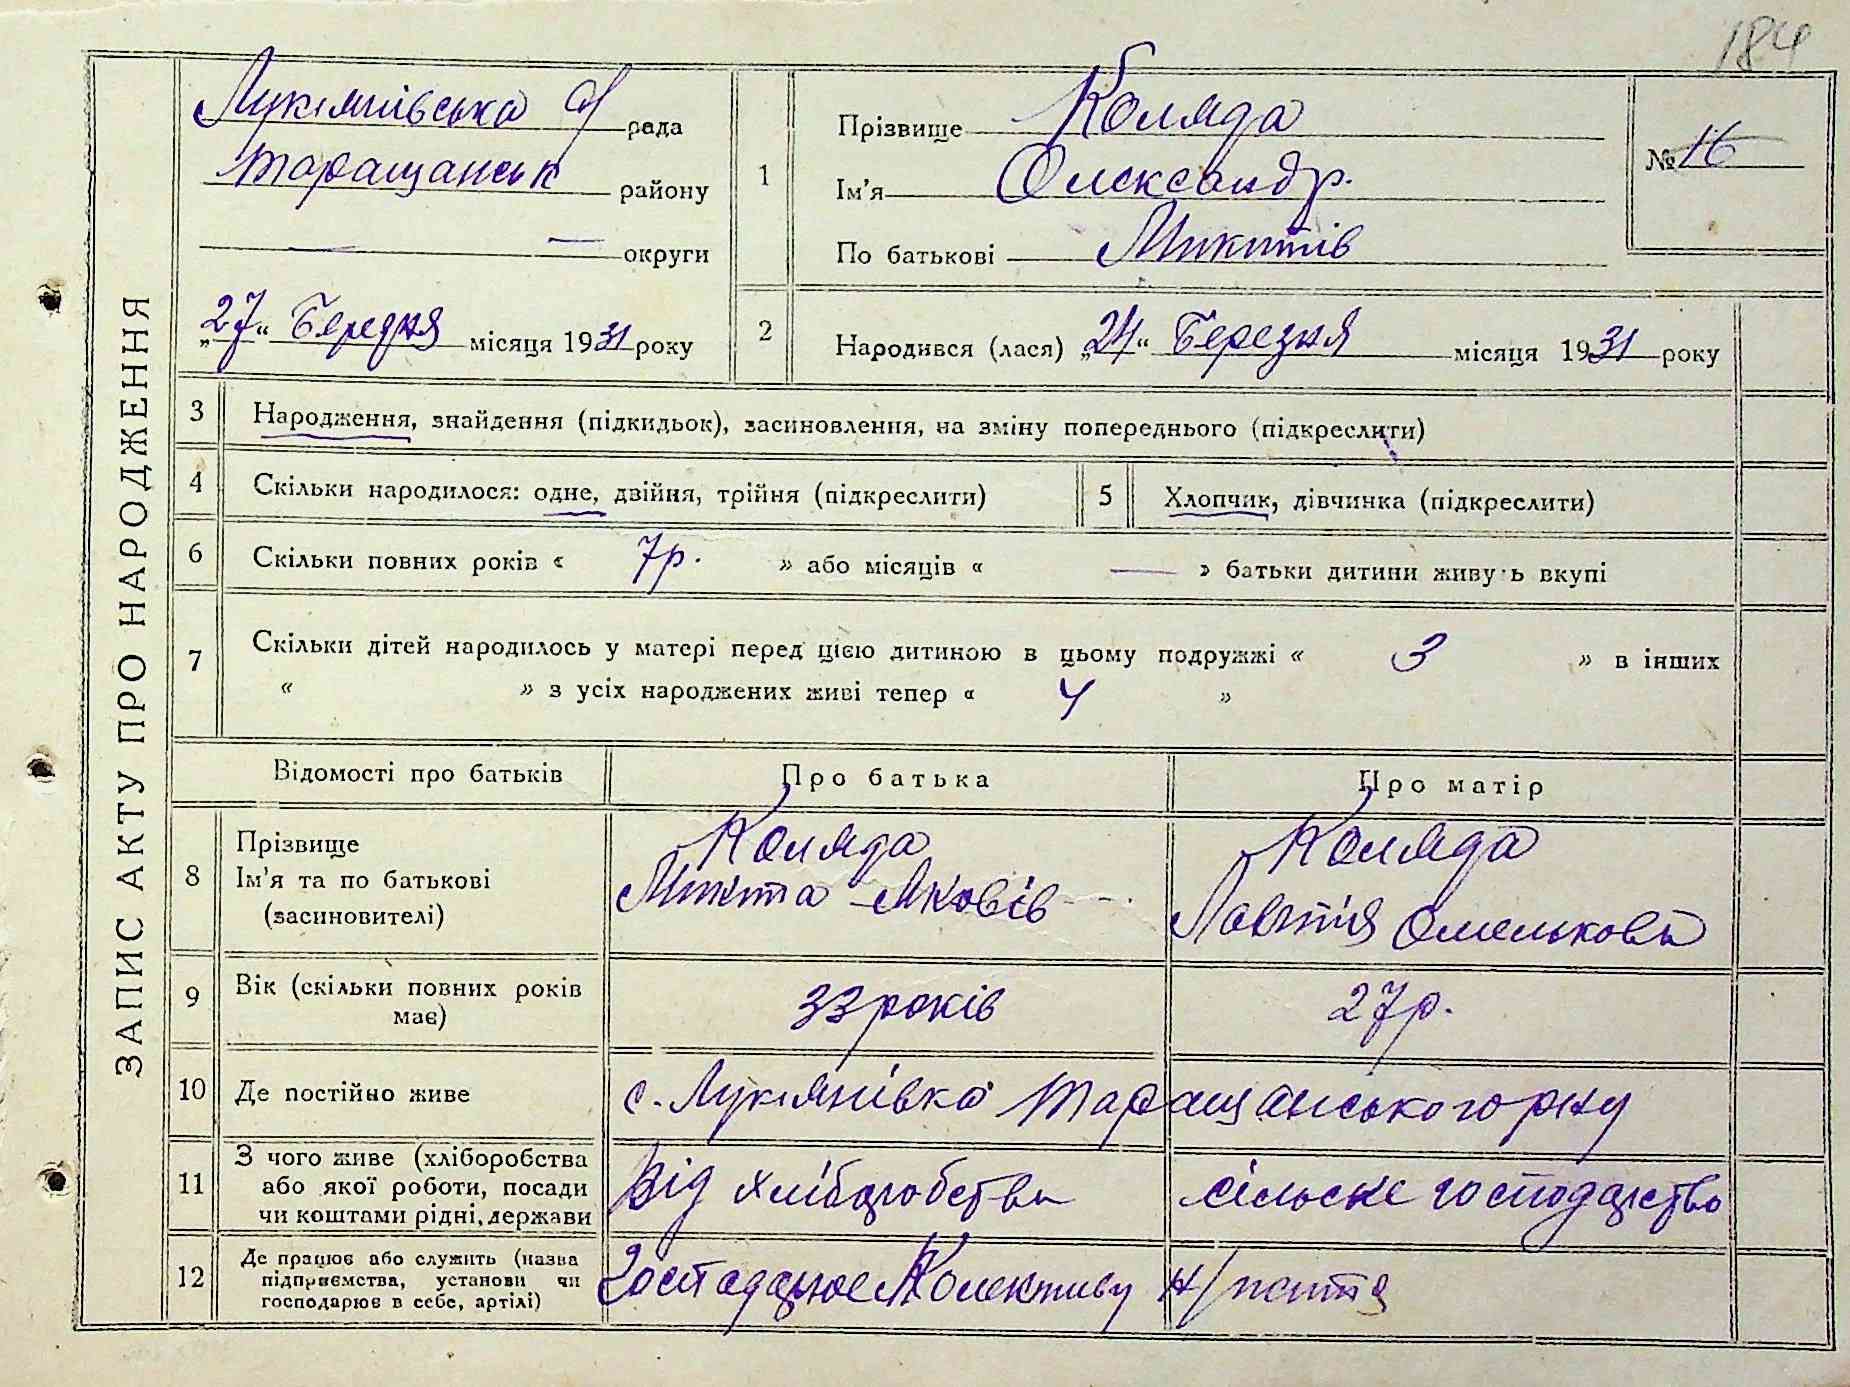 184
ЗАПИС АКТУ ПРО НАРОДЖЕННЯ
Лукянівська с/рада
Таращанськ району
— — округи
„27“ Березня місяця 1931 року
1
Прізвище Коляда
Ім'я Олександр.
По батькові Микитів
№ 16
2
Народився (лася) „24“ Березня місяця 1931 року
3 Народження, знайдення (підкидьок), засиновлення, на зміну попереднього (підкреслити)
4 Скільки народилося: одне, двійня, трійня (підкреслити) 5 Хлопчик, дівчинка (підкреслити)
6 Скільки повних років « 7р. » або місяців « — » батьки дитини живуть вкупі
7 Скільки дітей народилось у матері перед цією дитиною в цьому подружжі « 3 » в інших
« » з усіх народжених живі тепер « 4 »
Відомості про батьків Про батька Про матір
8 Прізвище
Ім'я та по батькові
(засиновителі)
Коляда
Микита Яковів
Коляда
Омелькова
9 Вік (скільки повних років
має)
33 років 27р.
10 Де постійно живе с. Лукянівка Таращанського р-ну
11 З чого живе (хліборобства
або якої роботи, посади
чи коштами рідні, держави
Від хліборобства сільське господарство
12 Де працює або служить (назва
підприємства, установи чи
господарює в себе, артілі)
Колективу